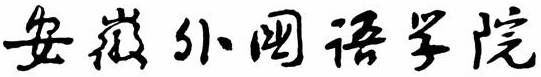 安徽外国语学院